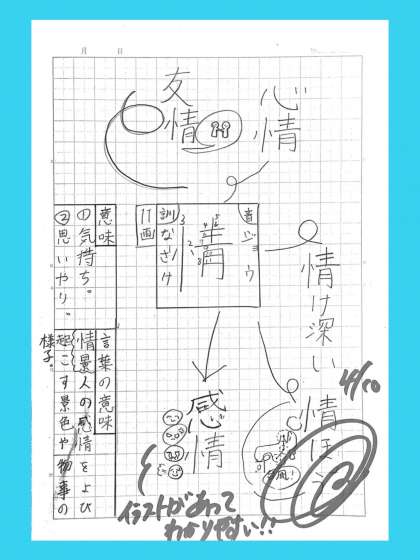 月　日
心情
友情
音ジョウ
情
訓なさけ
11画
意味
①気持ち。
②思いやり。
情け深い
情ほう
台風!
感情
言葉の意味
情景人の感情をよび
起こす景色や物事の
様子。
4/10
イラストがあって
わかりやすい!!